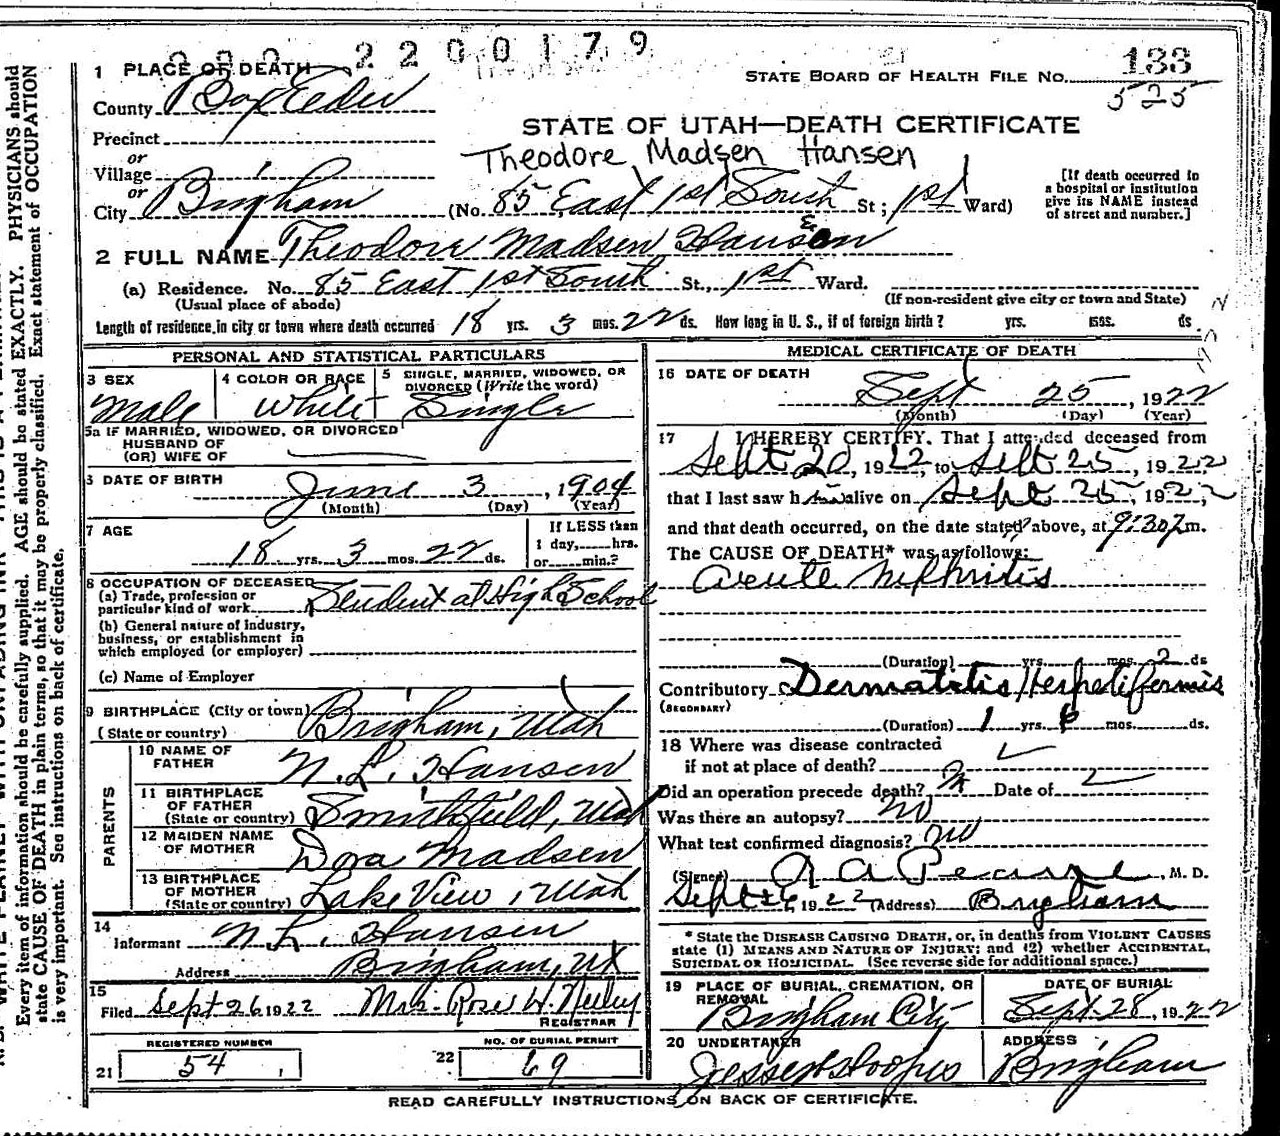 2200179
1 PLACE OF DEATH
STATE BOARD OF HEALTH FILE NO. 133
525
County Box Elder
STATE OF UTAH—DEATH CERTIFICATE
Precinct
or
Theodore Madsen Hansen
Village
or
City Brigham
(No. 85 East 1st South St; 1st Ward)
[If death occurred in
a hospital or institution
give its NAME instead
of street and number.]
2 FULL NAME Theodore Madsen Hansen
(a) Residence. No. 85 East 1st South St., 1st Ward.
(Usual place of abode)
(If non-resident give city or town and State)
Length of residence in city or town where death occurred 18 yrs. 3 mos. 22 ds. How long in U. S., if of foreign birth? yrs. mos. ds.
PERSONAL AND STATISTICAL PARTICULARS
3 SEX
Male
4 COLOR OR RACE
White
5 SINGLE, MARRIED, WIDOWED, OR
DIVORCED (Write the word)
Single
5a IF MARRIED, WIDOWED, OR DIVORCED
HUSBAND OF
(OR) WIFE OF
6 DATE OF BIRTH
June 3, 1904
(Month) (Day) (Year)
7 AGE
18 yrs. 3 mos. 22 ds.
If LESS than
1 day,......hrs.
or......min.?
8 OCCUPATION OF DECEASED
(a) Trade, profession or
particular kind of work Student at High School
(b) General nature of industry,
business, or establishment in
which employed (or employer)
(c) Name of Employer
9 BIRTHPLACE (City or town)
(State or country) Brigham, Utah
PARENTS
10 NAME OF
FATHER N. L. Hansen
11 BIRTHPLACE
OF FATHER
(State or country) Smithfield, Utah
12 MAIDEN NAME
OF MOTHER Dora Madsen
13 BIRTHPLACE
OF MOTHER
(State or country) Lake View, Utah
14
Informant N. L. Hansen
Address Brigham, Ut
15
Filed Sept 26 1922 Mrs. Rose W.
REGISTRAR
REGISTERED NUMBER
21 54
NO. OF BURIAL PERMIT
22 69
MEDICAL CERTIFICATE OF DEATH
16 DATE OF DEATH
Sept 25, 1922
(Month) (Day) (Year)
17 I HEREBY CERTIFY, That I attended deceased from
Sept 20, 1922, to Sept 25, 1922
that I last saw him alive on Sept 25, 1922,
and that death occurred, on the date stated above, at 9:30 m.
The CAUSE OF DEATH* was as follows:
Acute Nephritis
(Duration) yrs. mos. 2 ds
Contributory Dermatitis Herpetiformis
(SECONDARY)
(Duration) 1 yrs. 6 mos. ds.
18 Where was disease contracted
if not at place of death?
Did an operation precede death? Date of
Was there an autopsy? no
What test confirmed diagnosis? no
(Signed) A A Pearse, M. D.
Sept 26, 1922 (Address) Brigham
* State the DISEASE CAUSING DEATH, or, in deaths from VIOLENT CAUSES
state (1) MEANS AND NATURE OF INJURY; and (2) whether ACCIDENTAL,
SUICIDAL OR HOMICIDAL. (See reverse side for additional space.)
19 PLACE OF BURIAL, CREMATION, OR
REMOVAL
Brigham City
DATE OF BURIAL
Sept. 28, 1922
20 UNDERTAKER
ADDRESS
Brigham
READ CAREFULLY INSTRUCTIONS ON BACK OF CERTIFICATE.
Every item of information should be carefully supplied. AGE should be stated EXACTLY. PHYSICIANS should
state CAUSE OF DEATH in plain terms, so that it may be properly classified. Exact statement of OCCUPATION
is very important. See instructions on back of certificate.